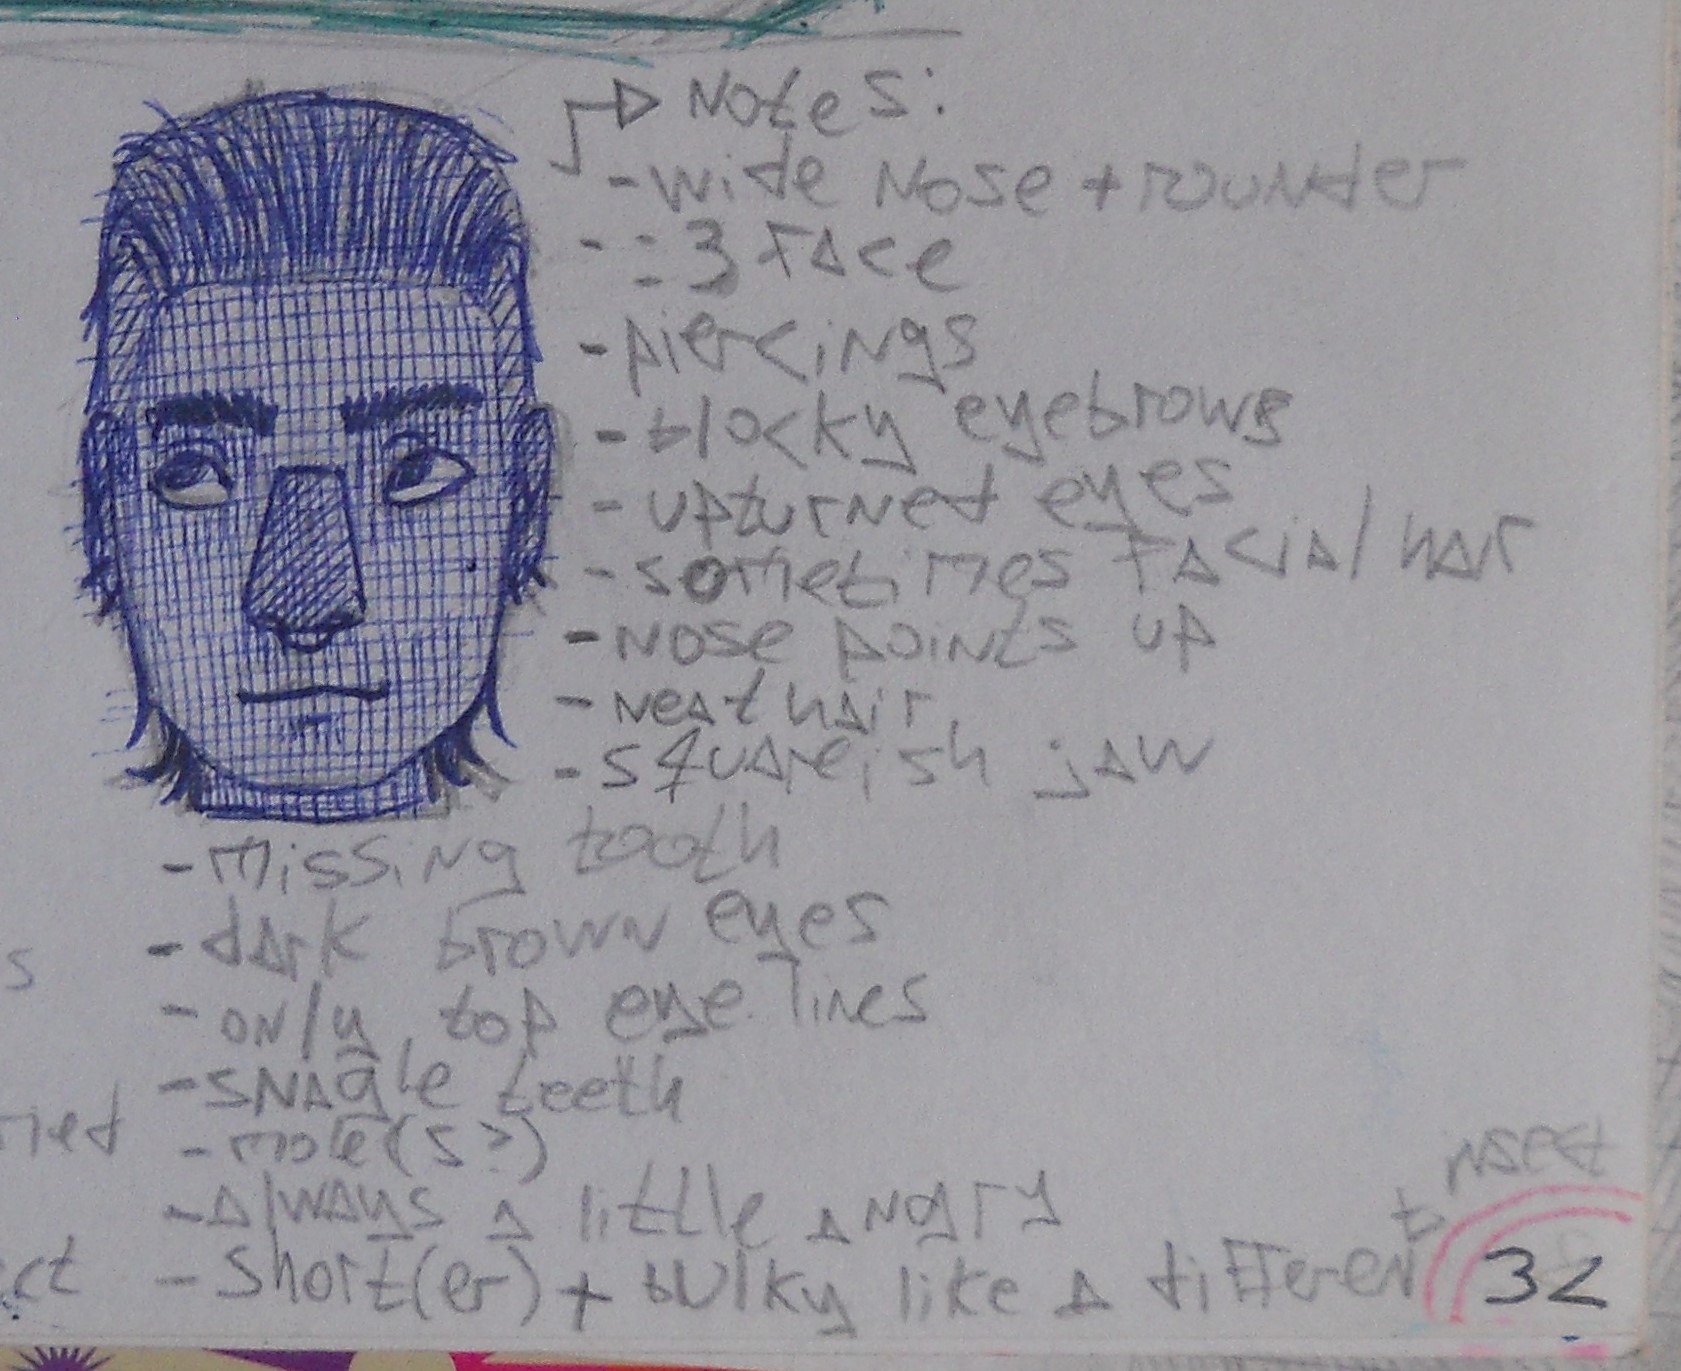 Notes:
- wide nose + rounder
- :3 face
- piercings
- blocky eyebrows
- upturned eyes
- sometimes facial hair
- nose points up
- neat hair
- squareish jaw
- missing tooth
- dark brown eyes
s
- only top eye lines
- snagle teeth
ried
- mole(s?)
- always a little angry
ect
- short(er) + bulky like a different
insect
32